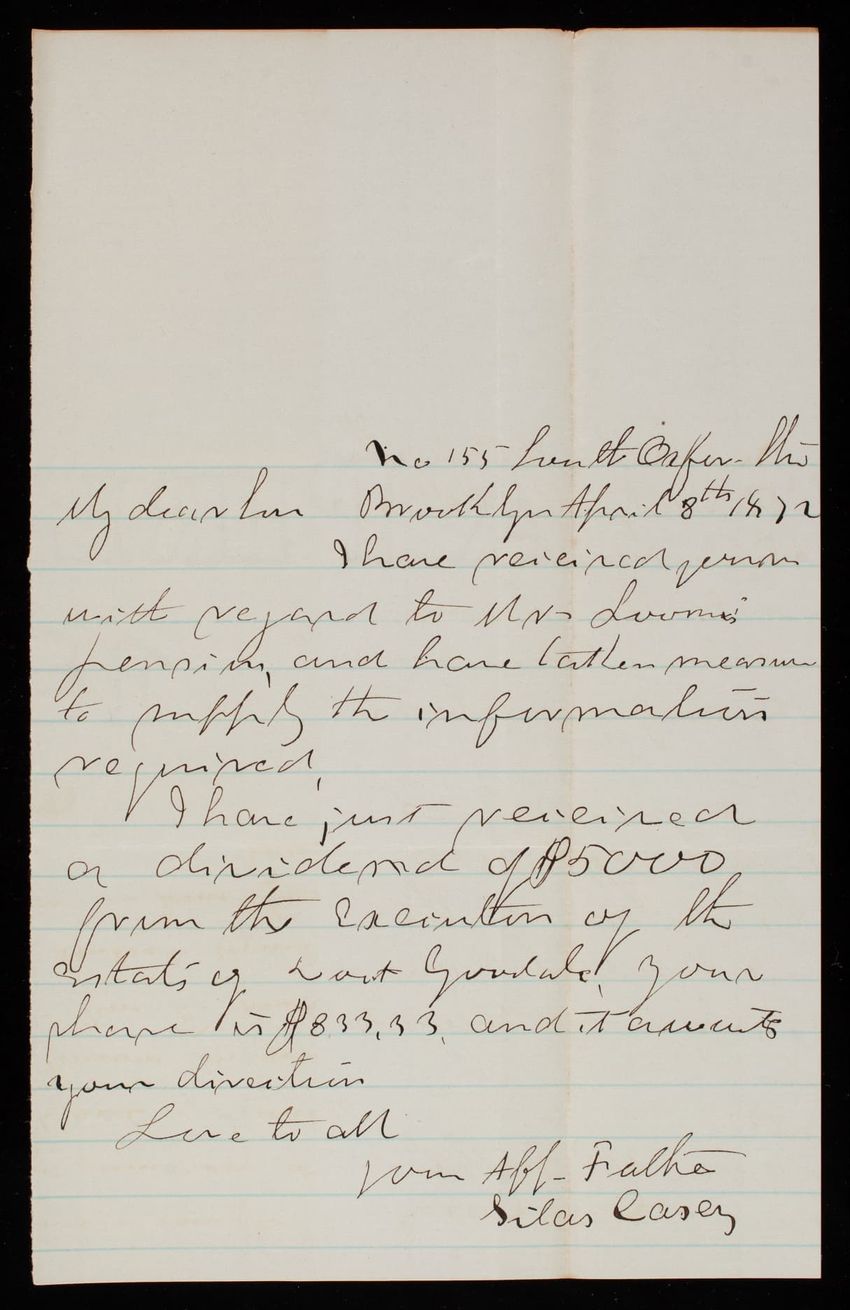 No 155 South Oxfor. St
My dear Son Brooklyn April 8th 1872
I have received yours
with regard to Mrs Loomis'
pension, and have taken measure
to supply the information
required,
I have just received
a dividend of $5000
from the Executor of the
Estate of Goodale, your
share is $833,33, and it awaits
your direction
Love to all
your Aff- Father
Silas Casey